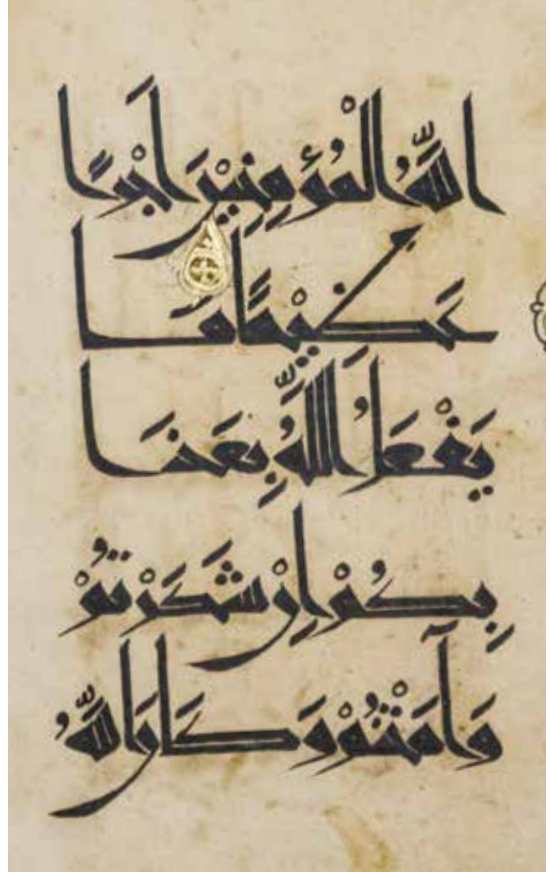 اللّٰهُ الْمُؤْمِنِيْنَ اَجْرًا
عَظِيْمًا مَا
يَفْعَلُ اللّٰهُ بِعَذَا
بِكُمْ اِنْ شَكَرْتُمْ
وَآمَنْتُمْ وَكَانَ اللّٰهُ